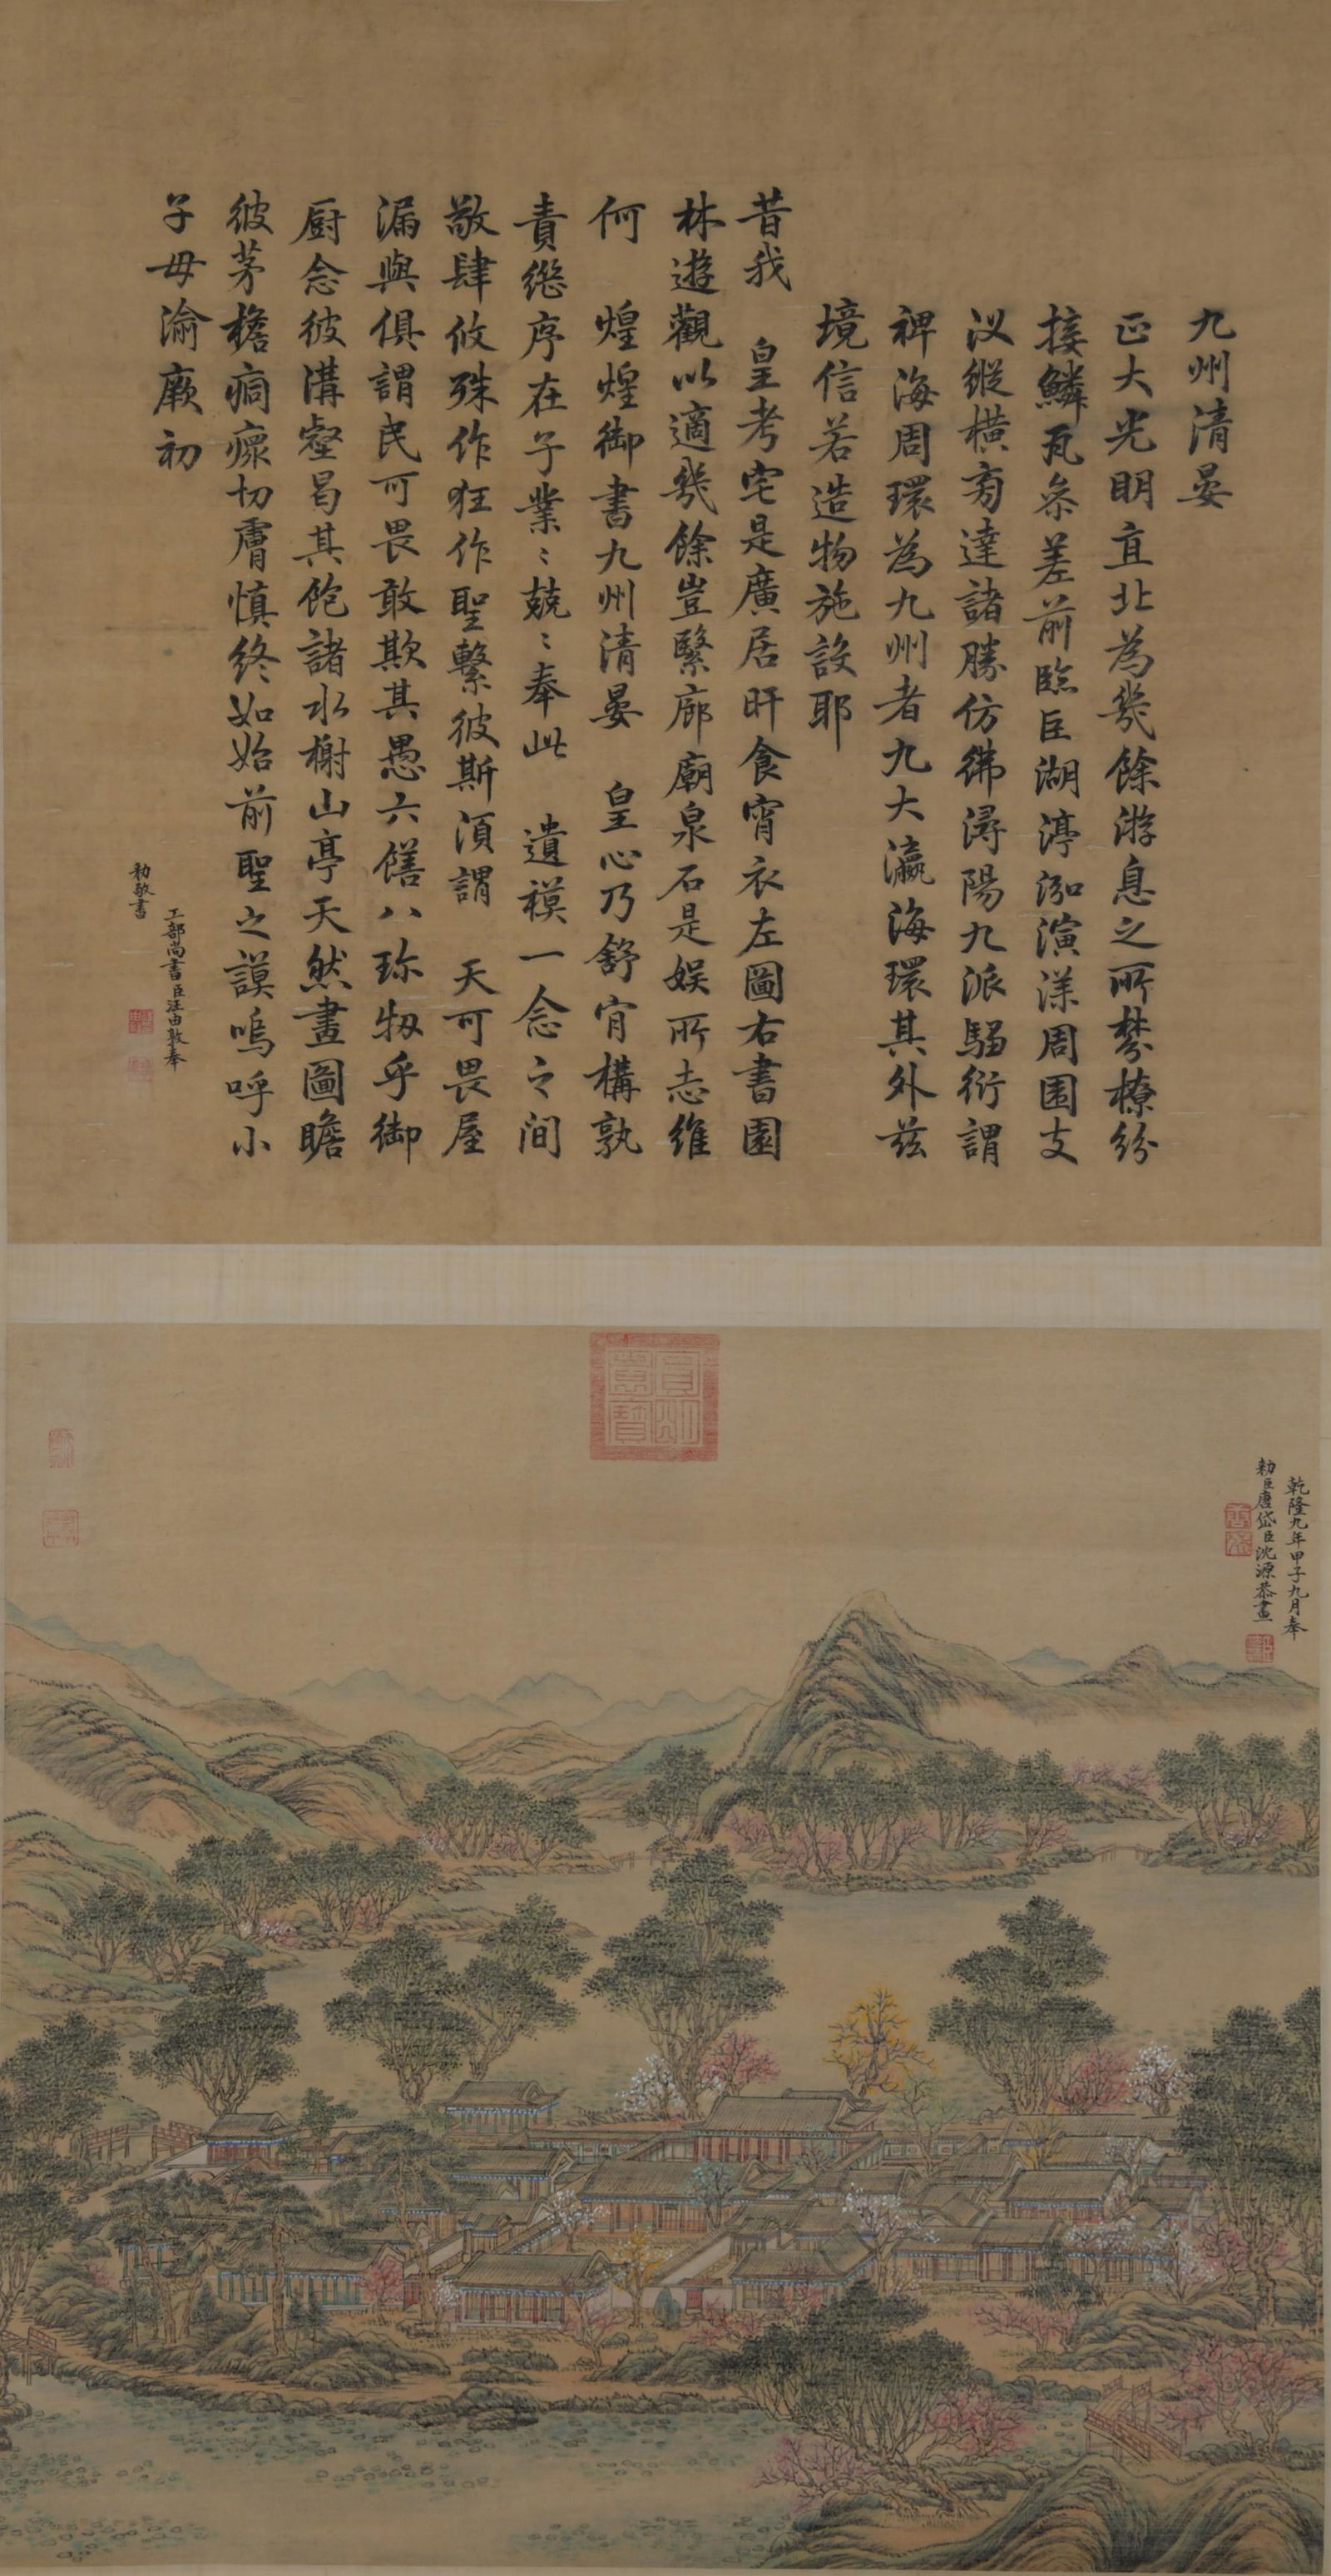 九州清晏
正大光明直北為幾餘游息之所棼橑紛
接鱗瓦參差前臨巨湖渟泓演漾周圍支
汊縱橫旁達諸勝仿彿潯陽九派騶衍謂
裨海周環為九州者九大瀛海環其外茲
境信若造物施設耶
昔我 皇考宅是廣居旰食宵衣左圖右書園
林遊觀以適幾餘豈繄廊廟泉石是娛所志維
何 煌煌御書九州清晏 皇心乃舒肯構孰
責繼序在予業〻兢〻奉此 遺模一念之間
敬肆攸殊作狂作聖繫彼斯須謂 天可畏屋
漏與俱謂民可畏敢欺其愚六饍八珍牣乎御
厨念彼溝壑曷其飽諸水榭山亭天然畫圖瞻
彼茅檐痌瘝切膚慎終如始前聖之謨嗚呼小
子毋渝厥初
工部尚書臣汪由敦奉
勑敬書
圓明園寶
乾隆九年甲子九月奉
勑臣唐岱臣沈源恭畫